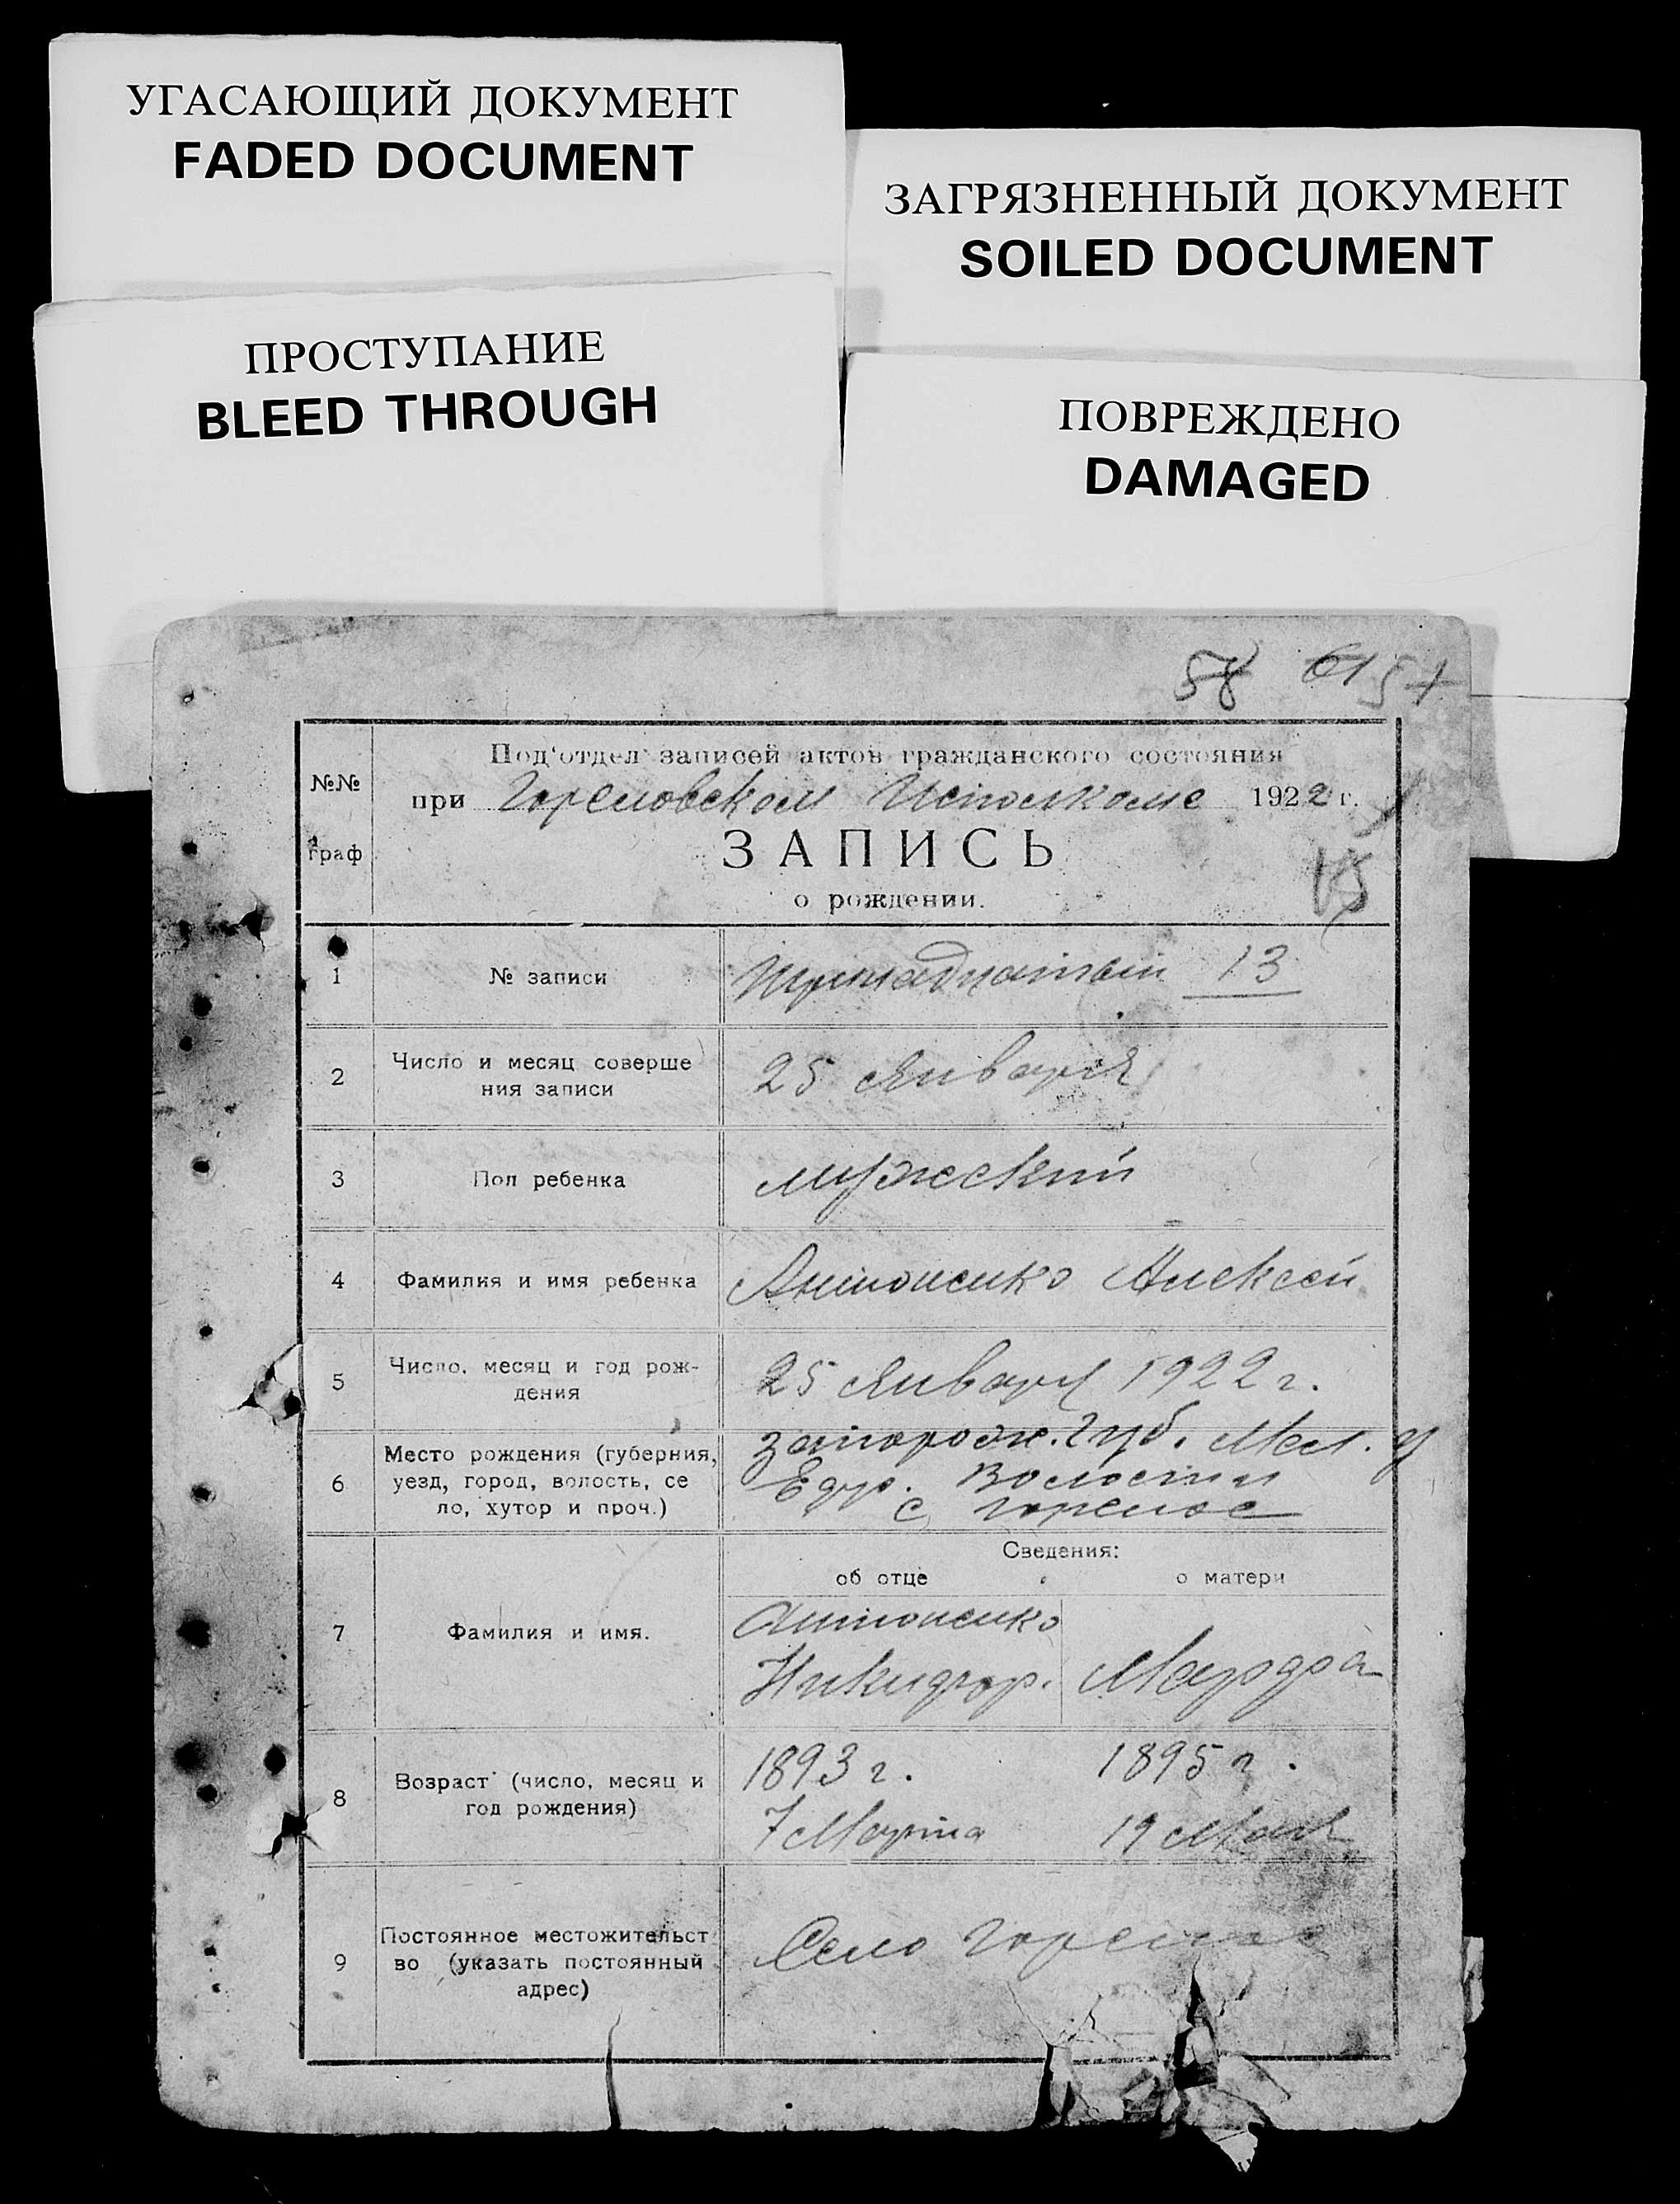 УГАСАЮЩИЙ ДОКУМЕНТ
FADED DOCUMENT
ЗАГРЯЗНЕННЫЙ ДОКУМЕНТ
SOILED DOCUMENT
ПРОСТУПАНИЕ
BLEED THROUGH
ПОВРЕЖДЕНО
DAMAGED
58 61 57
№№ граф
Под‘отдел записей актов гражданского состояния
при Гореловском Исполкоме 1922 г.
ЗАПИСЬ
о рождении.
15
1 № записи Тринадцатый 13
2 Число и месяц соверше
ния записи 25 Января
3 Пол ребенка мужеский
4 Фамилия и имя ребенка Антоненко Алексей
5 Число, месяц и год рож-
дения 25 Января 1922 г.
6 Место рождения (губерния,
уезд, город, волость, се
ло, хутор и проч.)
Запорож. Губ. Мел. у
Волости
с Горелое
Сведения:
об отце о матери
7 Фамилия и имя.
Антоненко
Никифор. Марфа
8 Возраст (число, месяц и
год рождения)
1893 г. 1895 г.
7 Марта 19 Мая
9 Постоянное местожительст
во (указать постоянный
адрес)
Село Горелое